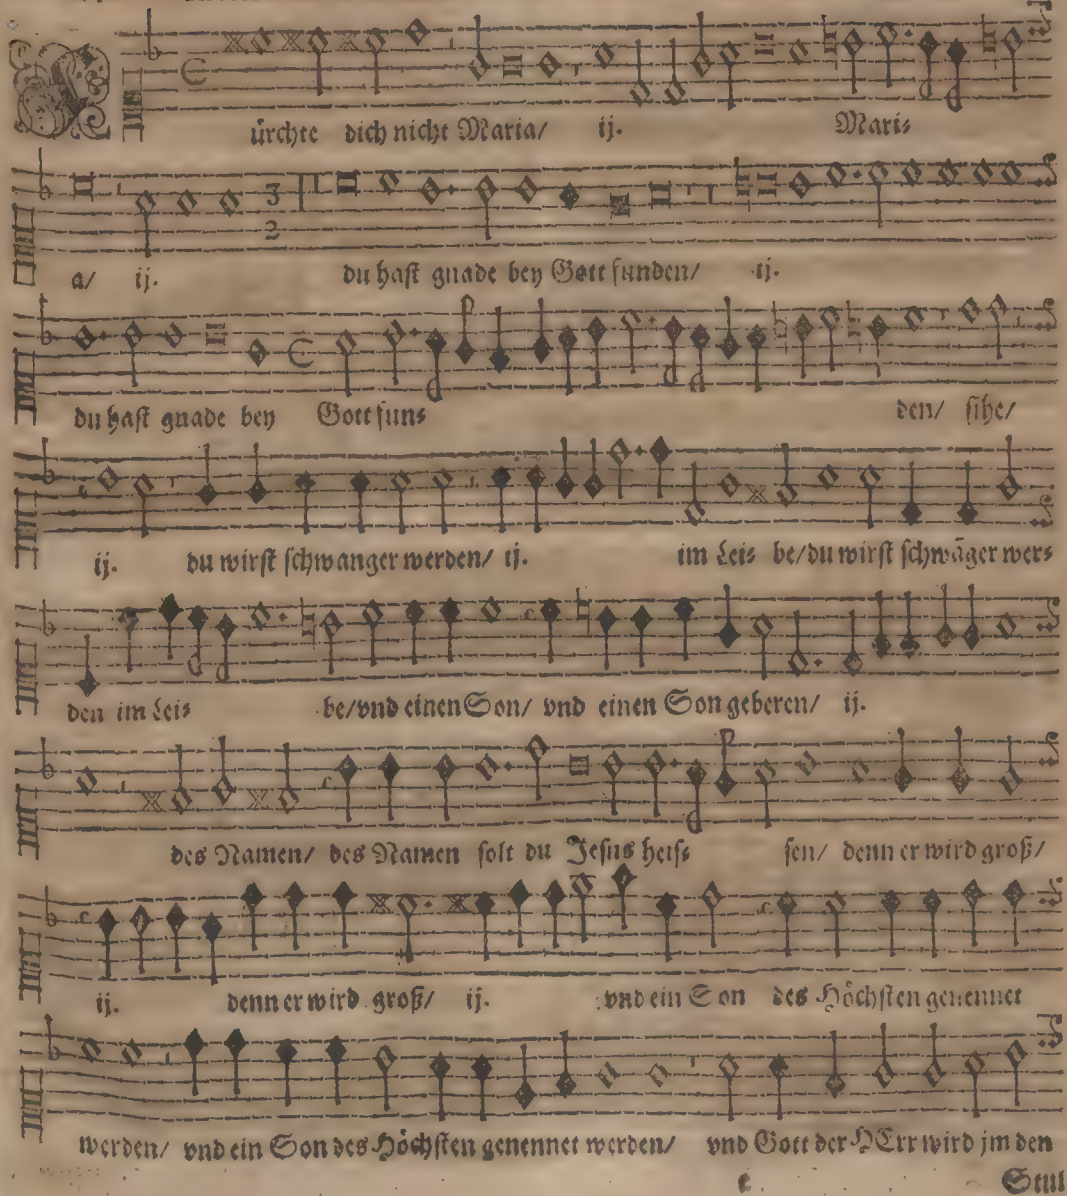 Fürchte dich nicht Maria/ ij. Mari⸗
a/ ij. du hast gnade bey Gott funden/ ij.
du hast gnade bey Gott fun⸗ den/ sihe/
ij. du wirst schwanger werden/ ij. im Lei⸗ be/du wirst schwãger wer⸗
den im Lei⸗ be/vnd einen Son/ vnd einen Son geberen/ ij.
des Namen/ des Namen solt du Jesus heis⸗ sen/ denn er wird groß/
ij. denn er wird groß/ ij. vnd ein Son des Höchsten genennet
werden/ vnd ein Son des Höchsten genennet werden/ vnd Gott der HErr wird jm den
Stul